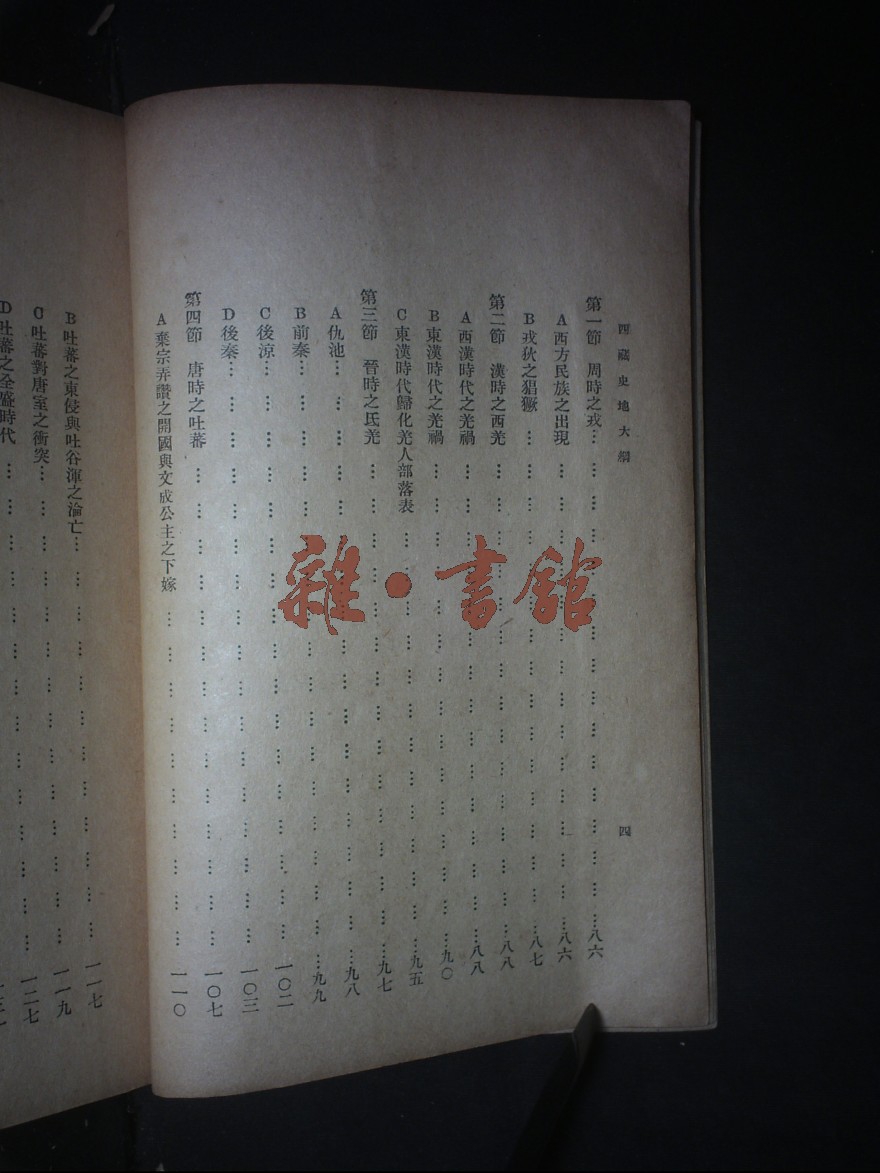 西藏史地大綱
四
第一節 周時之戎……八六
A 西方民族之出現……八六
B 戎狄之猖獗……八七
第二節 漢時之西羌……八八
A 西漢時代之羌禍……八八
B 東漢時代之羌禍……九〇
C 東漢時代歸化羌人部落表……九五
第三節 晉時之氐羌……九七
A 仇池……九八
B 前秦……九九
C 後涼……一〇二
D 後秦……一〇三
第四節 唐時之吐蕃……一〇七
A 棄宗弄讚之開國與文成公主之下嫁……一一〇
B 吐蕃之東侵與吐谷渾之淪亡……一一七
C 吐蕃對唐室之衝突……一一九
D 吐蕃之全盛時代……一二七
雜·書館